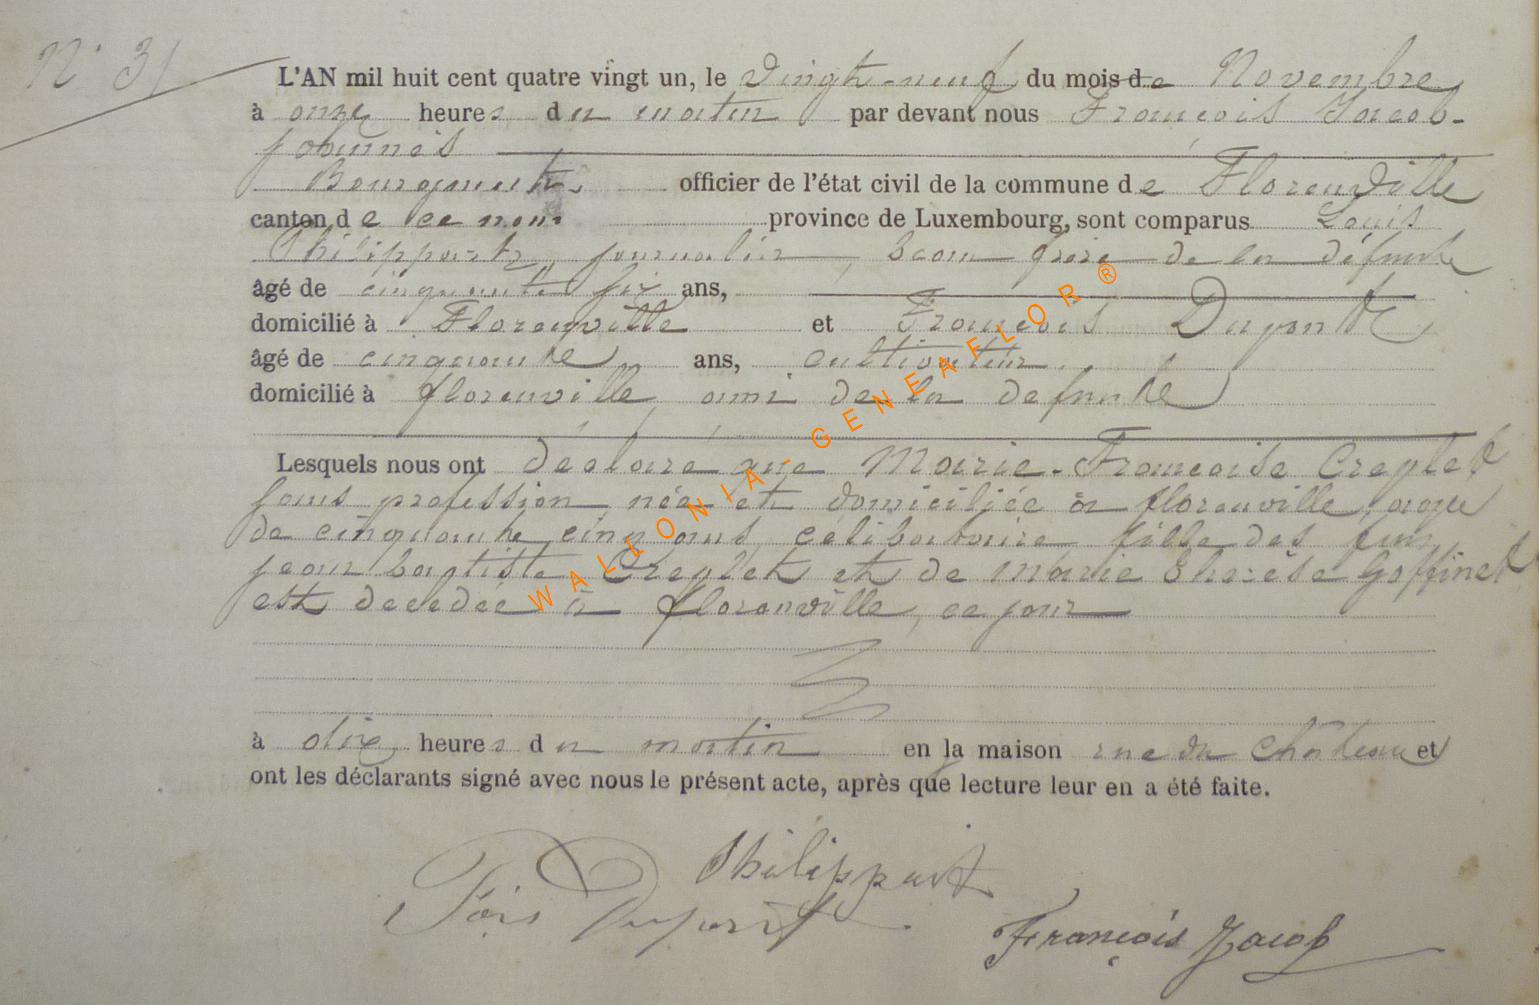 N° 31
L'AN mil huit cent quatre vingt un, le vingt-neuf du mois de Novembre
à onze heures du matin par devant nous François Jacob-
Bourgmestre officier de l'état civil de la commune de Florenville
canton de ce nom. province de Luxembourg, sont comparus Louis
Philippart, journalier, beau frère de la défunte
âgé de cinquante six ans,
domicilié à Florenville et François Dupont
âgé de cinquante ans, cultivateur
domicilié à florenville, ami de la defunte
Lesquels nous ont déclaré que Marie-Françoise Creplet
sans profession, née et domiciliée à florenville, agée
de cinquante cinq ans, célibataire fille des feus
jean baptiste Creplet et de marie thérèse Goffinet
est decedée à florenville, ce jour
à dix heures du matin en la maison rue du Château et
ont les déclarants signé avec nous le présent acte, après que lecture leur en a été faite.
Philippart
Fçois Dupont
François Jacob
WALLONIA-GENEAFLOR®